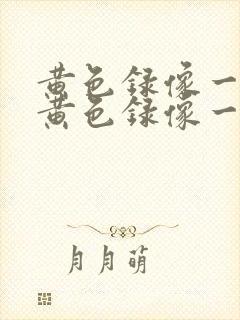 黄色録像一
黄色録像一
月月萌